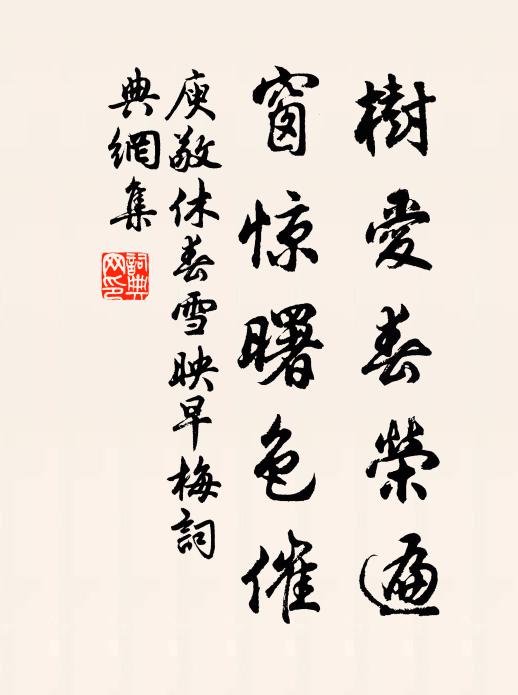 樹愛春榮遍
窗惊曙色催
庾敬休春雪映早梅詞
典網集
詞典
网印